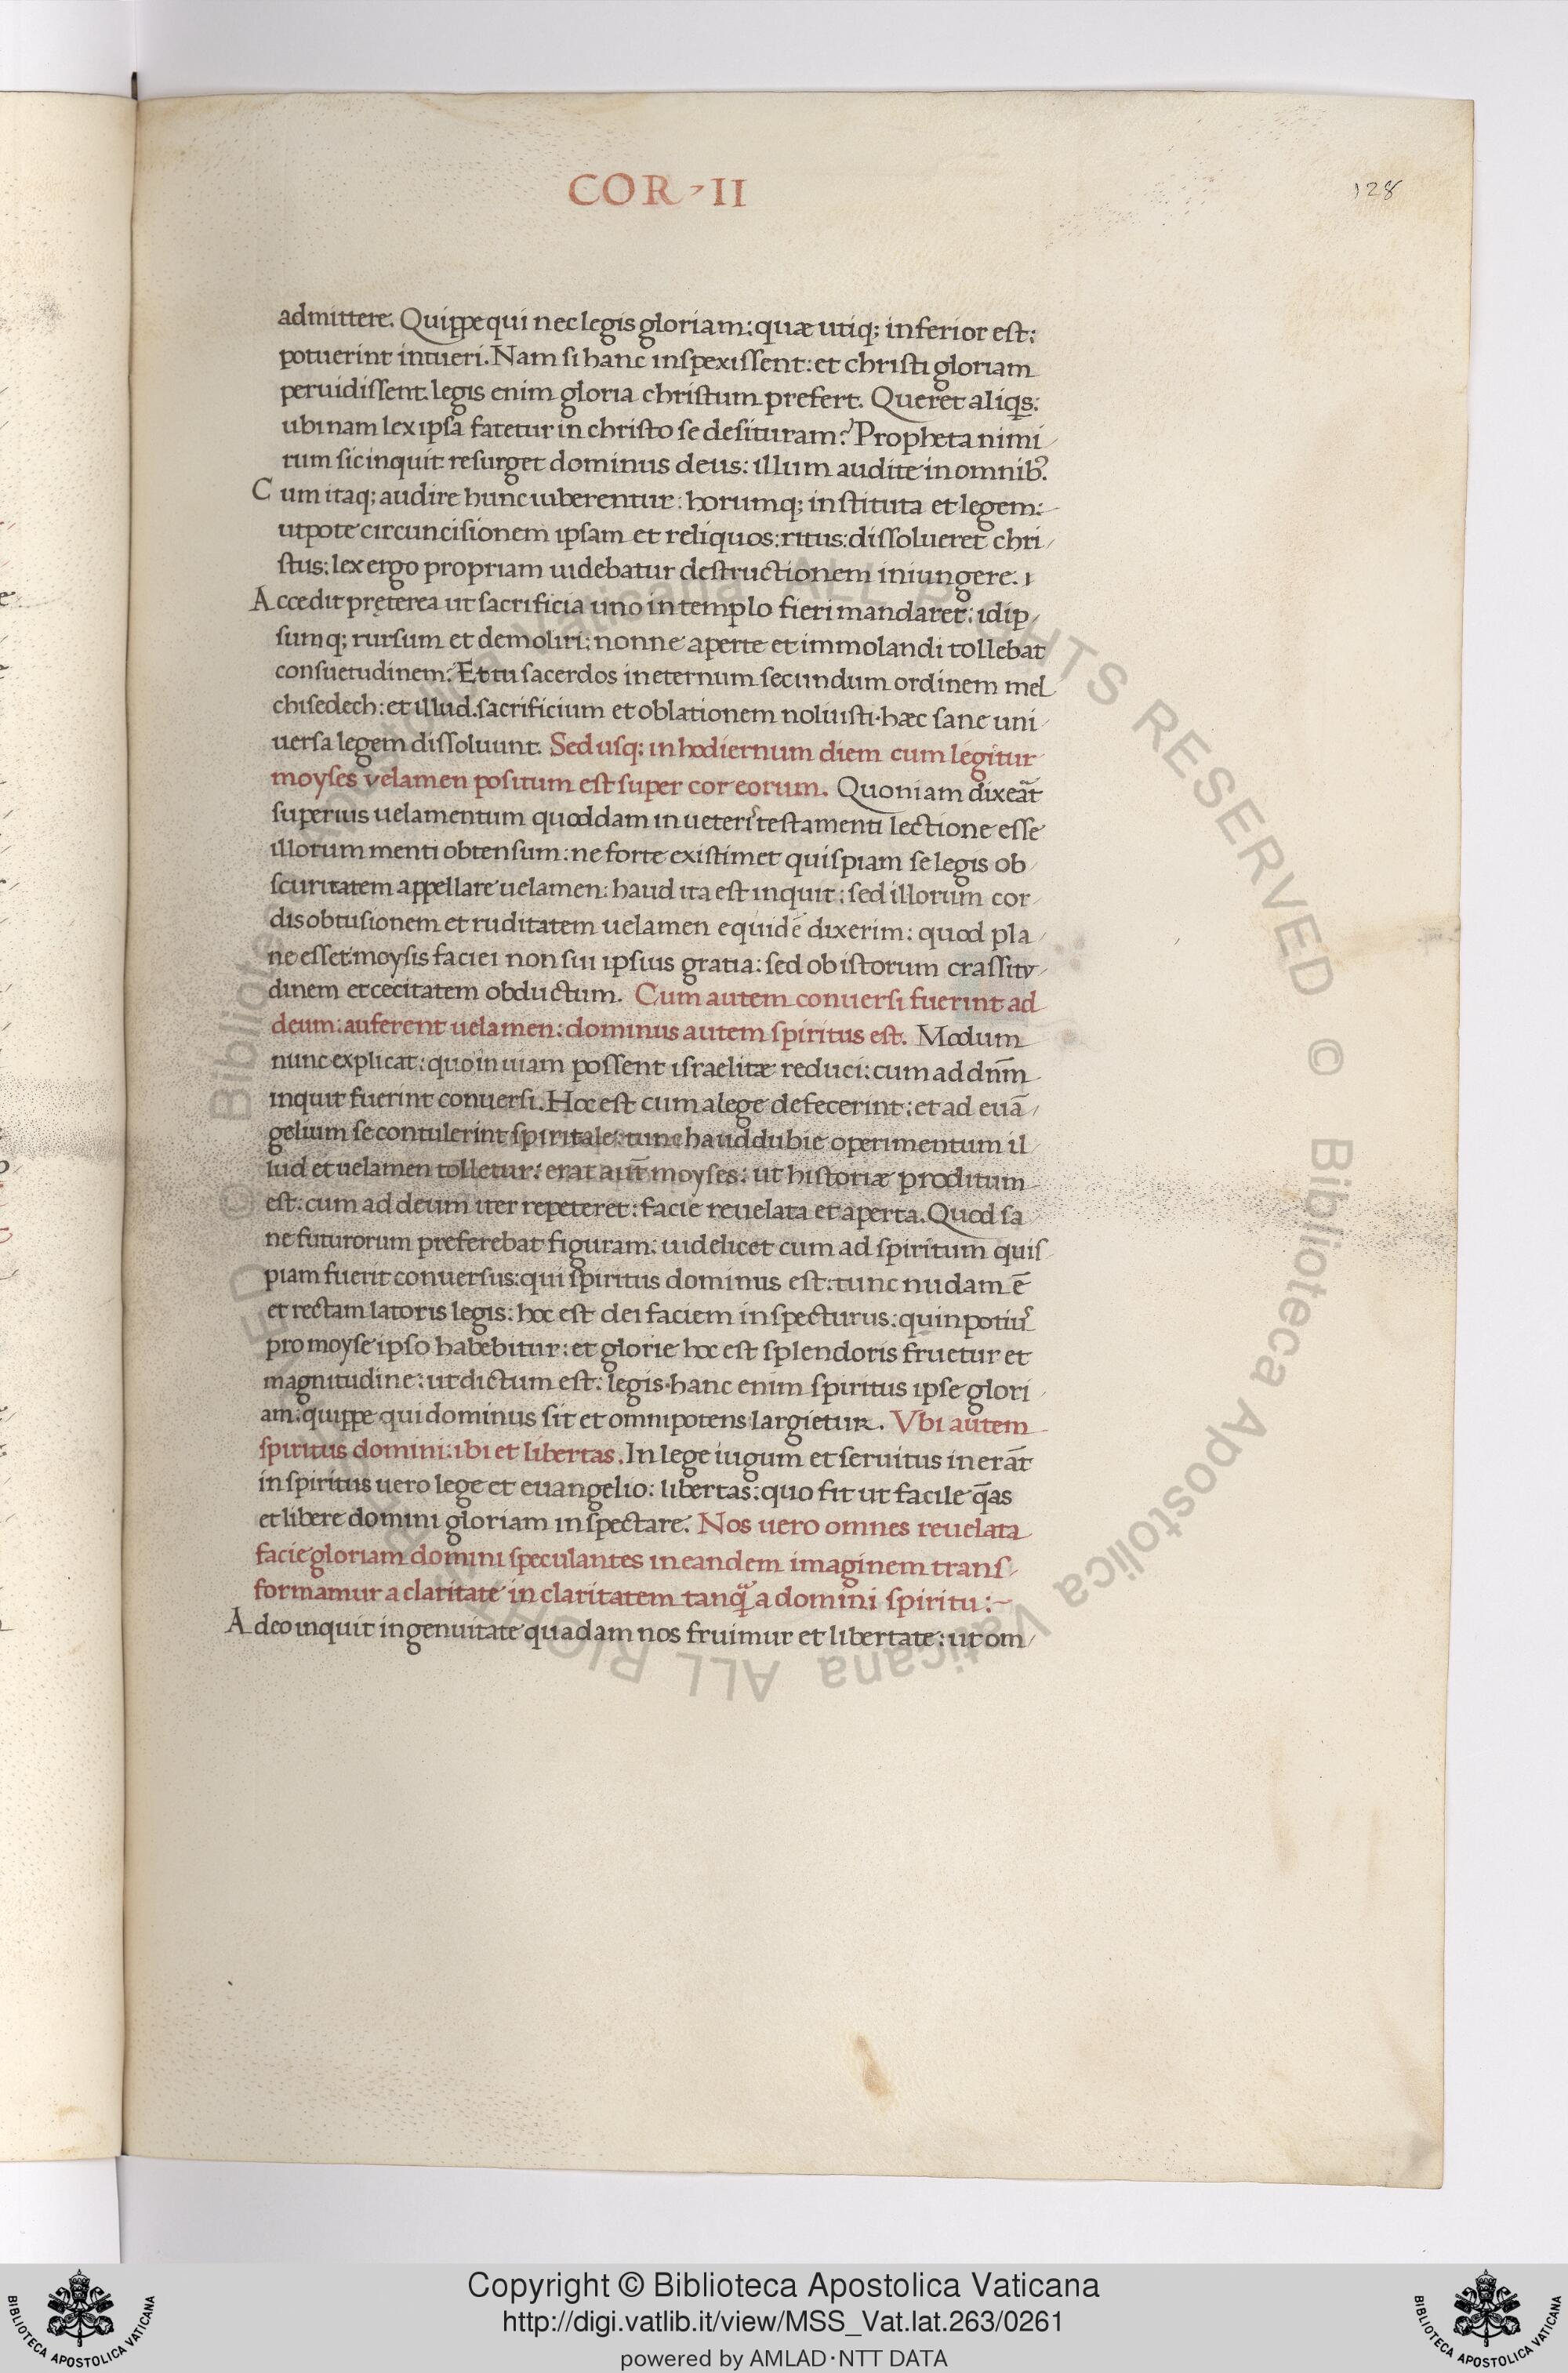 COR · II
128
admittere. Quippe qui nec legis gloriam: quæ utiq; inferior est:
potuerint intueri. Nam si hanc inspexissent: et christi gloriam
peruidissent. legis enim gloria christum prefert. Queret aliqs:
ubinam lex ipsa fatetur in christo se desituram? Propheta nimi/
rum sic inquit resurget dominus deus: illum audite in omnib⁹.
Cum itaq; audire hunc iuberentur: horumq; instituta et legem:
utpote circuncisionem ipsam et reliquos: ritus: dissolueret chri/
stus: lex ergo propriam uidebatur destructionem iniungere.
Accedit pręterea ut sacrificia uno in templo fieri mandaret: idip/
sumq; rursum et demoliri: nonne aperte et immolandi tollebat
consuetudinem? Et tu sacerdos in eternum secundum ordinem mel
chisedech: et illud. sacrificium et oblationem noluisti. hæc sane uni/
uersa legem dissoluunt. Sed usq; in hodiernum diem cum legitur
moyses velamen positum est super cor eorum. Quoniam dixeāt
superius uelamentum quoddam in ueteris testamenti lectione esse
illorum menti obtensum: ne forte existimet quispiam se legis ob/
scuritatem appellare uelamen: haud ita est inquit: sed illorum cor/
dis obtusionem et ruditatem uelamen equidē dixerim: quod pla/
ne esset moysis faciei non sui ipsius gratia: sed ob istorum crassitu/
dinem et cecitatem obductum. Cum autem conuersi fuerint ad
deum: auferent uelamen: dominus autem spiritus est. Modum
nunc explicat: quo in uiam possent israelitæ reduci: cum ad dn̄m
inquit fuerint conuersi. Hoc est cum a lege defecerint: et ad euā/
gelium se contulerint spiritale: tunc haud dubie operimentum il
lud et uelamen tolletur: erat aut̄ moyses: ut historiæ proditum
est: cum ad deum iter repeteret: facie reuelata et aperta. Quod sa/
ne futurorum preferebat figuram: uidelicet cum ad spiritum quis/
piam fuerit conuersus: qui spiritus dominus est: tunc nudam ē
et rectam latoris legis: hoc est dei faciem inspecturus: quin potiu᷒
pro moyse ipso habebitur: et glorie hoc est splendoris fruetur et
magnitudine: ut dictum est: legis. hanc enim spiritus ipse glori/
am: quippe qui dominus sit et omnipotens largietur. Vbi autem
spiritus domini: ibi et libertas. In lege iugum et seruitus inerāt
in spiritus uero lege et euangelio: libertas: quo fit ut facile q̄as
et libere domini gloriam inspectare. Nos uero omnes reuelata
facie gloriam domini speculantes in eandem imaginem trans/
formamur a claritate in claritatem tanq̄ a domini spiritu:~
Adeo inquit ingenuitate quadam nos fruimur et libertate: ut om/
Copyright © Biblioteca Apostolica Vaticana
http://digi.vatlib.it/view/MSS_Vat.lat.263/0261
powered by AMLAD·NTT DATA